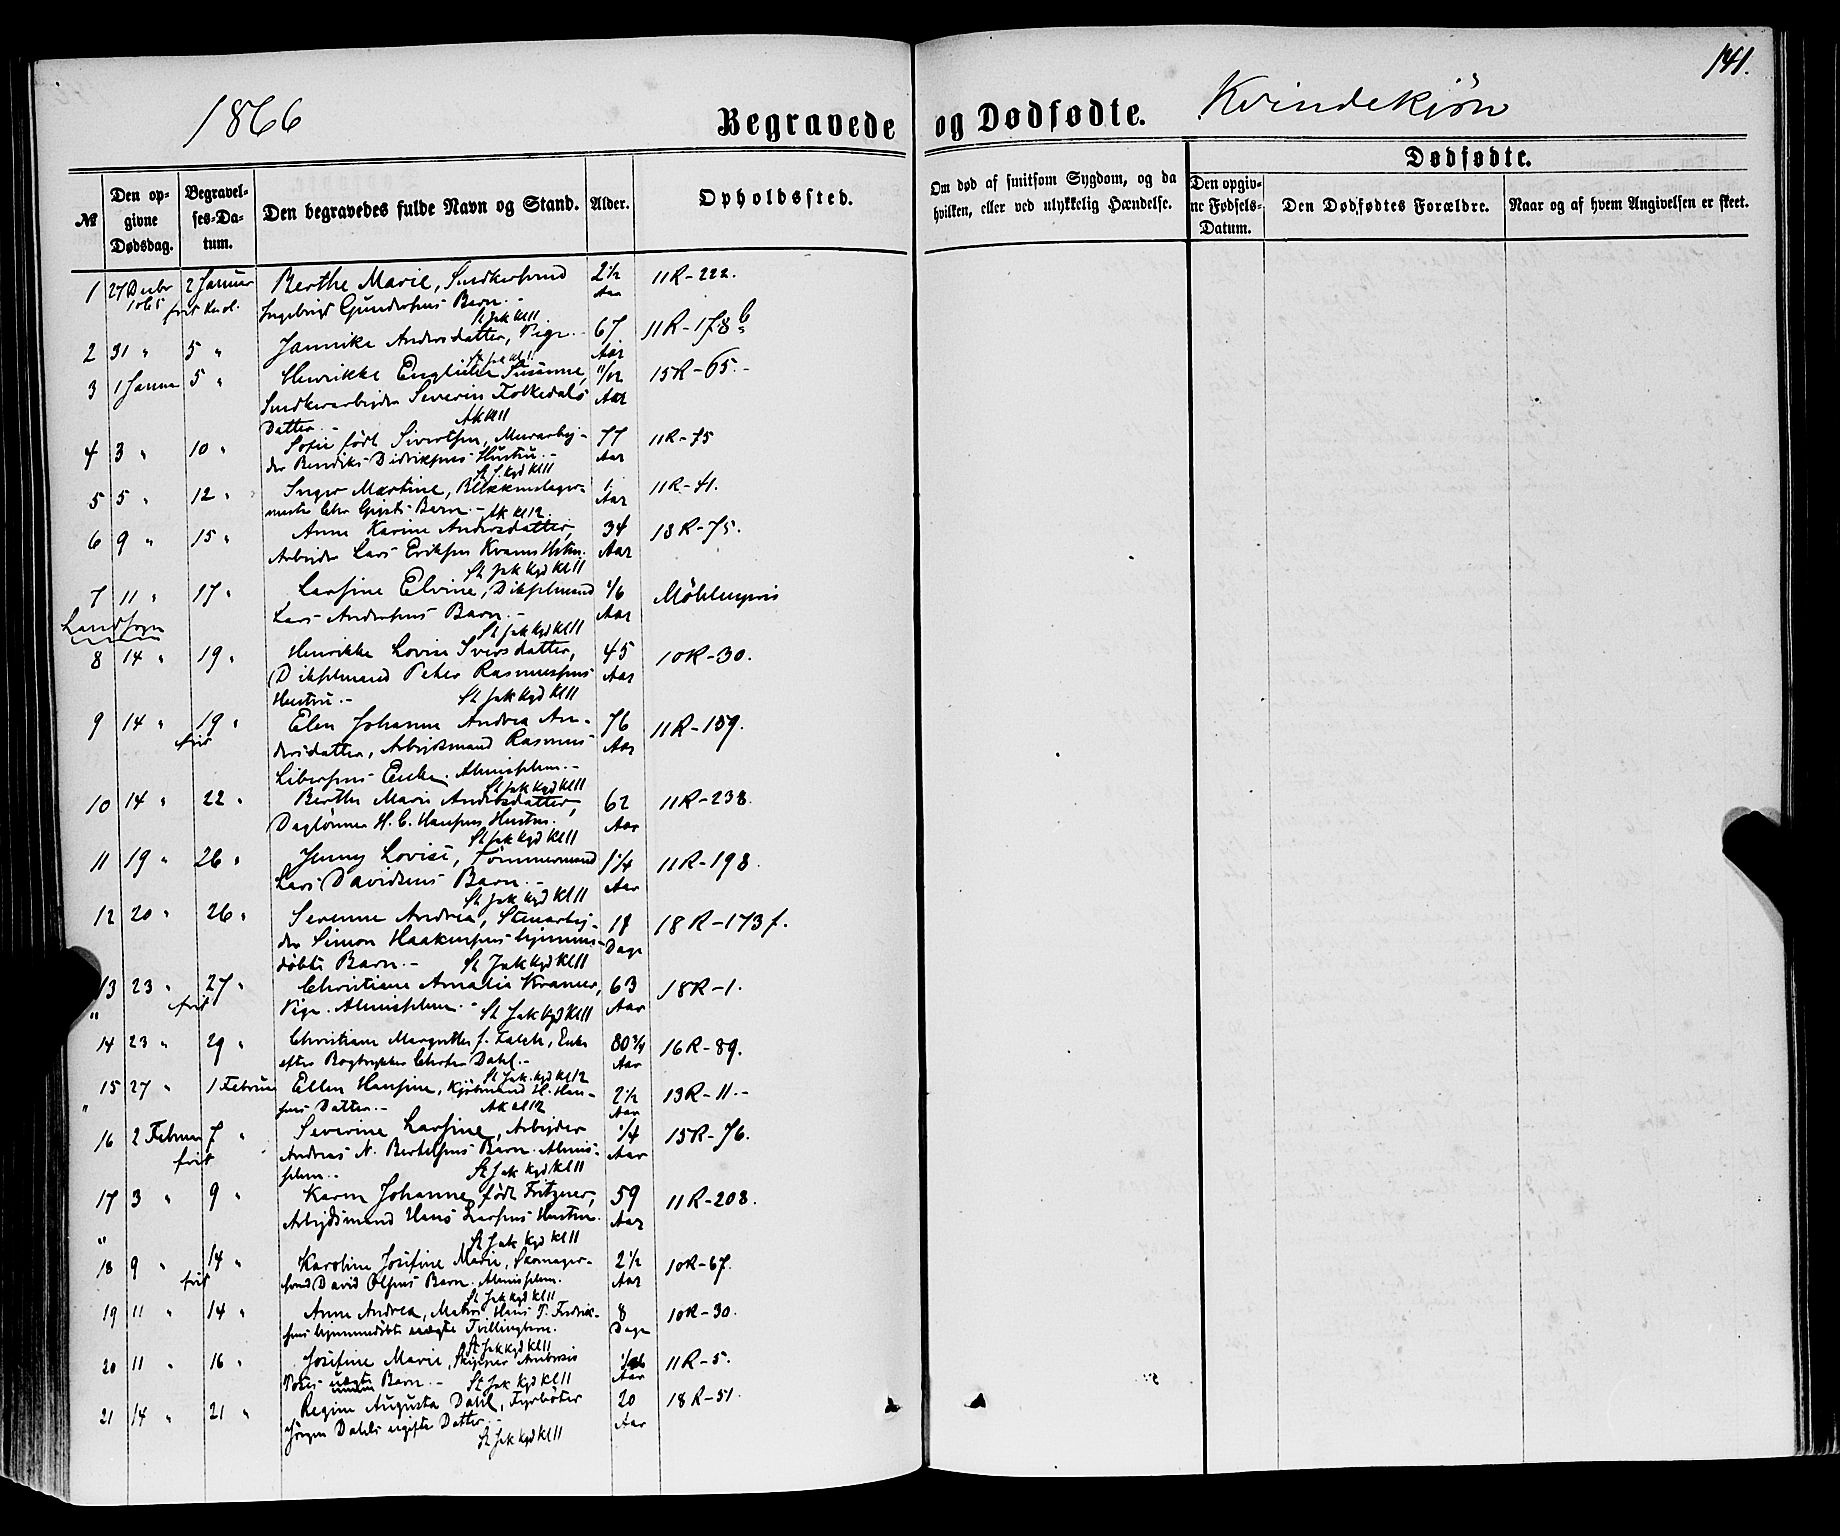 141.
1866
Begravede og Dødfødte.
Kvindekjøn
№
Den opgivne Dødsdag.
Begravelses-Datum.
Den begravedes fulde Navn og Stand.
Alder.
Opholdssted.
Om død af smitsom Sygdom, og da hvilken, eller ved ulykkelig Hændelse.
Dødfødte.
Den opgivne Fødsels-Datum.
Den Dødfødtes Forældre.
Naar og af hvem Angivelsen er skeet.
1 27 Decbr 2 Januar Berthe Marie, Snedkersvend 2½ 11R-222.
1865 frit Ingebrigt Gundersens Barn.- Aar
St Jak Kl 11
2 31 " 5 " Jannike Andersdatter, Pige.- 67 11R-178b
Aar
3 1 Januar 5 " Henrikke Susanne, 11/12 15R-65.-
Snedkerarbeider Severin Folkedals Aar
Datter.- AK Kl 11
4 3 " 10 " Sofie født Sivertsen, Murarbei- 77 11R-75
der Bendiks Didriksens Hustru.- Aar
St J. Kgd Kl 11
5 5 " 12 " Inger Martine, Blikkenslager- 1 11R-41.
mester Chr Barn.- AK Kl 12. Aar
6 9 " 15 " Anne Karine Andersdatter, 34 18R-75.
Arbeider Lars Eriksen Kvams Aar
St Jak Kgd Kl 11
7 11 " 17 " Larsine Elvine, Dikselmand 1/6 Möhlenpris
Landsogn Lars Andersens Barn.- Aar
St Jak Kgd Kl 11
8 14 " 19 " Henrikke Lovise Iversdatter, 45 10R-30.
Dikselmand Peter Rasmussens Aar
Hustru.- St Jak Kgd Kl 11
9 14 " 19 " Elen Johanne Andrea An- 76 11R-159.
frit dersdatter, Arbeidsmand Rasmus Aar
Libersens Enke. Almisselem.-
St Jak Kgd Kl 11
10 14 " 22 " Berthe Marie Andersdatter, 62 11R-238.
Daglönner H. C. Hansens Hustru. Aar
St Jak Kgd Kl 11
11 19 " 26 " Jenny Lovise, Tömmermand 1¼ 11R-198.
Lars Davidsens Barn.- Aar
St Jak Kgd Kl 11
12 20 " 26 " Serenne Andrea, Stenarbei- 18 18R-173f.
der Simon Haakensens hjemme- Dage
döbte Barn.- St Jak Kgd Kl 11
13 23 " 27 " Christiane Amalia Kramer, 63 18R-1.
" frit Pige. Almisselem.- St Jak Kgd Kl 11 Aar
14 23 " 29 " Christiane Margrethe f. Falch, Enke 80¾ 16R-89.
efter Bogtrykker Dahl.- Aar
St Jak. Kgd Kl 12
15 27 " 1 Februar Ellen Hansine, Kjöbmand H. Han- 2½ 13R-11.-
" sens Datter.- AK Kl 12 Aar
16 2 Februar 7 " Severine Larsine, Arbeider 1/4 15R-76.
frit Andreas N. Bertelsens Barn. Almis- Aar
selem.- St Jak Kgd Kl 11
17 3 " 9 " Karen Johanne født Fritzner, 59 11R-208.
" Arbeidsmand Hans Larsens Hustru. Aar
St Jak Kgd Kl 11
18 9 " 14 " Karoline Josefine Marie, Skomager- 2½ 10R-67.
frit svend David Olsens Barn. Almisselem. Aar
St Jak Kgd Kl 11
19 11 " 14 " Anne Andrea, Matros Hans P. Fredrik- 8 10R-30.
sens hjemmedöbte uægte Tvillingbarn. Dage
St Jak Kgd Kl 11
20 11 " 16 " Josefine Marie, 11R-5.
uægte Barn.- St Jak Kgd Kl 11 Aar
21 14 " 21 " Regine Augusta Dahl, Fyrböter 20 18R-51.
Jörgen Dahls ugifte Datter.- Aar
St Jak Kgd Kl 11